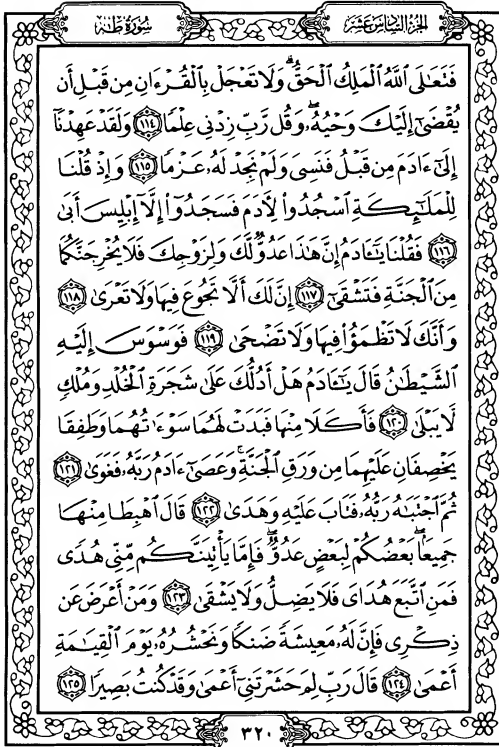 الجزء السادس عشر
سورة طه
فَتَعَٰلَى ٱللَّهُ ٱلْمَلِكُ ٱلْحَقُّ ۗ وَلَا تَعْجَلْ بِٱلْقُرْءَانِ مِن قَبْلِ أَن
يُقْضَىٰٓ إِلَيْكَ وَحْيُهُۥ ۖ وَقُل رَّبِّ زِدْنِى عِلْمًا ﴿١١٤﴾ وَلَقَدْ عَهِدْنَآ
إِلَىٰٓ ءَادَمَ مِن قَبْلُ فَنَسِىَ وَلَمْ نَجِدْ لَهُۥ عَزْمًا ﴿١١٥﴾ وَإِذْ قُلْنَا
لِلْمَلَٰٓئِكَةِ ٱسْجُدُوا۟ لِءَادَمَ فَسَجَدُوٓا۟ إِلَّآ إِبْلِيسَ أَبَىٰ
﴿١١٦﴾ فَقُلْنَا يَٰٓـَٔادَمُ إِنَّ هَٰذَا عَدُوٌّ لَّكَ وَلِزَوْجِكَ فَلَا يُخْرِجَنَّكُمَا
مِنَ ٱلْجَنَّةِ فَتَشْقَىٰٓ ﴿١١٧﴾ إِنَّ لَكَ أَلَّا تَجُوعَ فِيهَا وَلَا تَعْرَىٰ ﴿١١٨﴾
وَأَنَّكَ لَا تَظْمَؤُا۟ فِيهَا وَلَا تَضْحَىٰ ﴿١١٩﴾ فَوَسْوَسَ إِلَيْهِ
ٱلشَّيْطَٰنُ قَالَ يَٰٓـَٔادَمُ هَلْ أَدُلُّكَ عَلَىٰ شَجَرَةِ ٱلْخُلْدِ وَمُلْكٍ
لَّا يَبْلَىٰ ﴿١٢٠﴾ فَأَكَلَا مِنْهَا فَبَدَتْ لَهُمَا سَوْءَٰتُهُمَا وَطَفِقَا
يَخْصِفَانِ عَلَيْهِمَا مِن وَرَقِ ٱلْجَنَّةِ ۚ وَعَصَىٰٓ ءَادَمُ رَبَّهُۥ فَغَوَىٰ ﴿١٢١﴾
ثُمَّ ٱجْتَبَٰهُ رَبُّهُۥ فَتَابَ عَلَيْهِ وَهَدَىٰ ﴿١٢٢﴾ قَالَ ٱهْبِطَا مِنْهَا
جَمِيعًۢا ۖ بَعْضُكُمْ لِبَعْضٍ عَدُوٌّ ۖ فَإِمَّا يَأْتِيَنَّكُم مِّنِّى هُدًى
فَمَنِ ٱتَّبَعَ هُدَاىَ فَلَا يَضِلُّ وَلَا يَشْقَىٰ ﴿١٢٣﴾ وَمَنْ أَعْرَضَ عَن
ذِكْرِى فَإِنَّ لَهُۥ مَعِيشَةً ضَنكًا وَنَحْشُرُهُۥ يَوْمَ ٱلْقِيَٰمَةِ
أَعْمَىٰ ﴿١٢٤﴾ قَالَ رَبِّ لِمَ حَشَرْتَنِىٓ أَعْمَىٰ وَقَدْ كُنتُ بَصِيرًا ﴿١٢٥﴾
٣٢٠